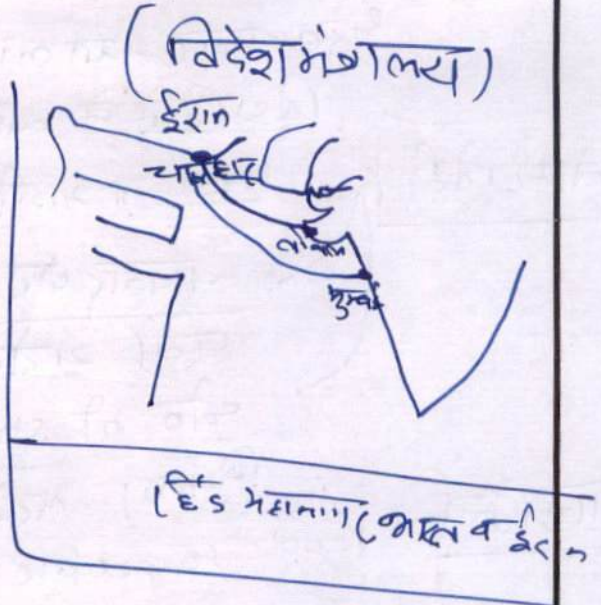 (विदेश मंत्रालय)
ईरान
चाबहार
कांडला
मुम्बई
(हिंद महासागर (भारत व ईरान